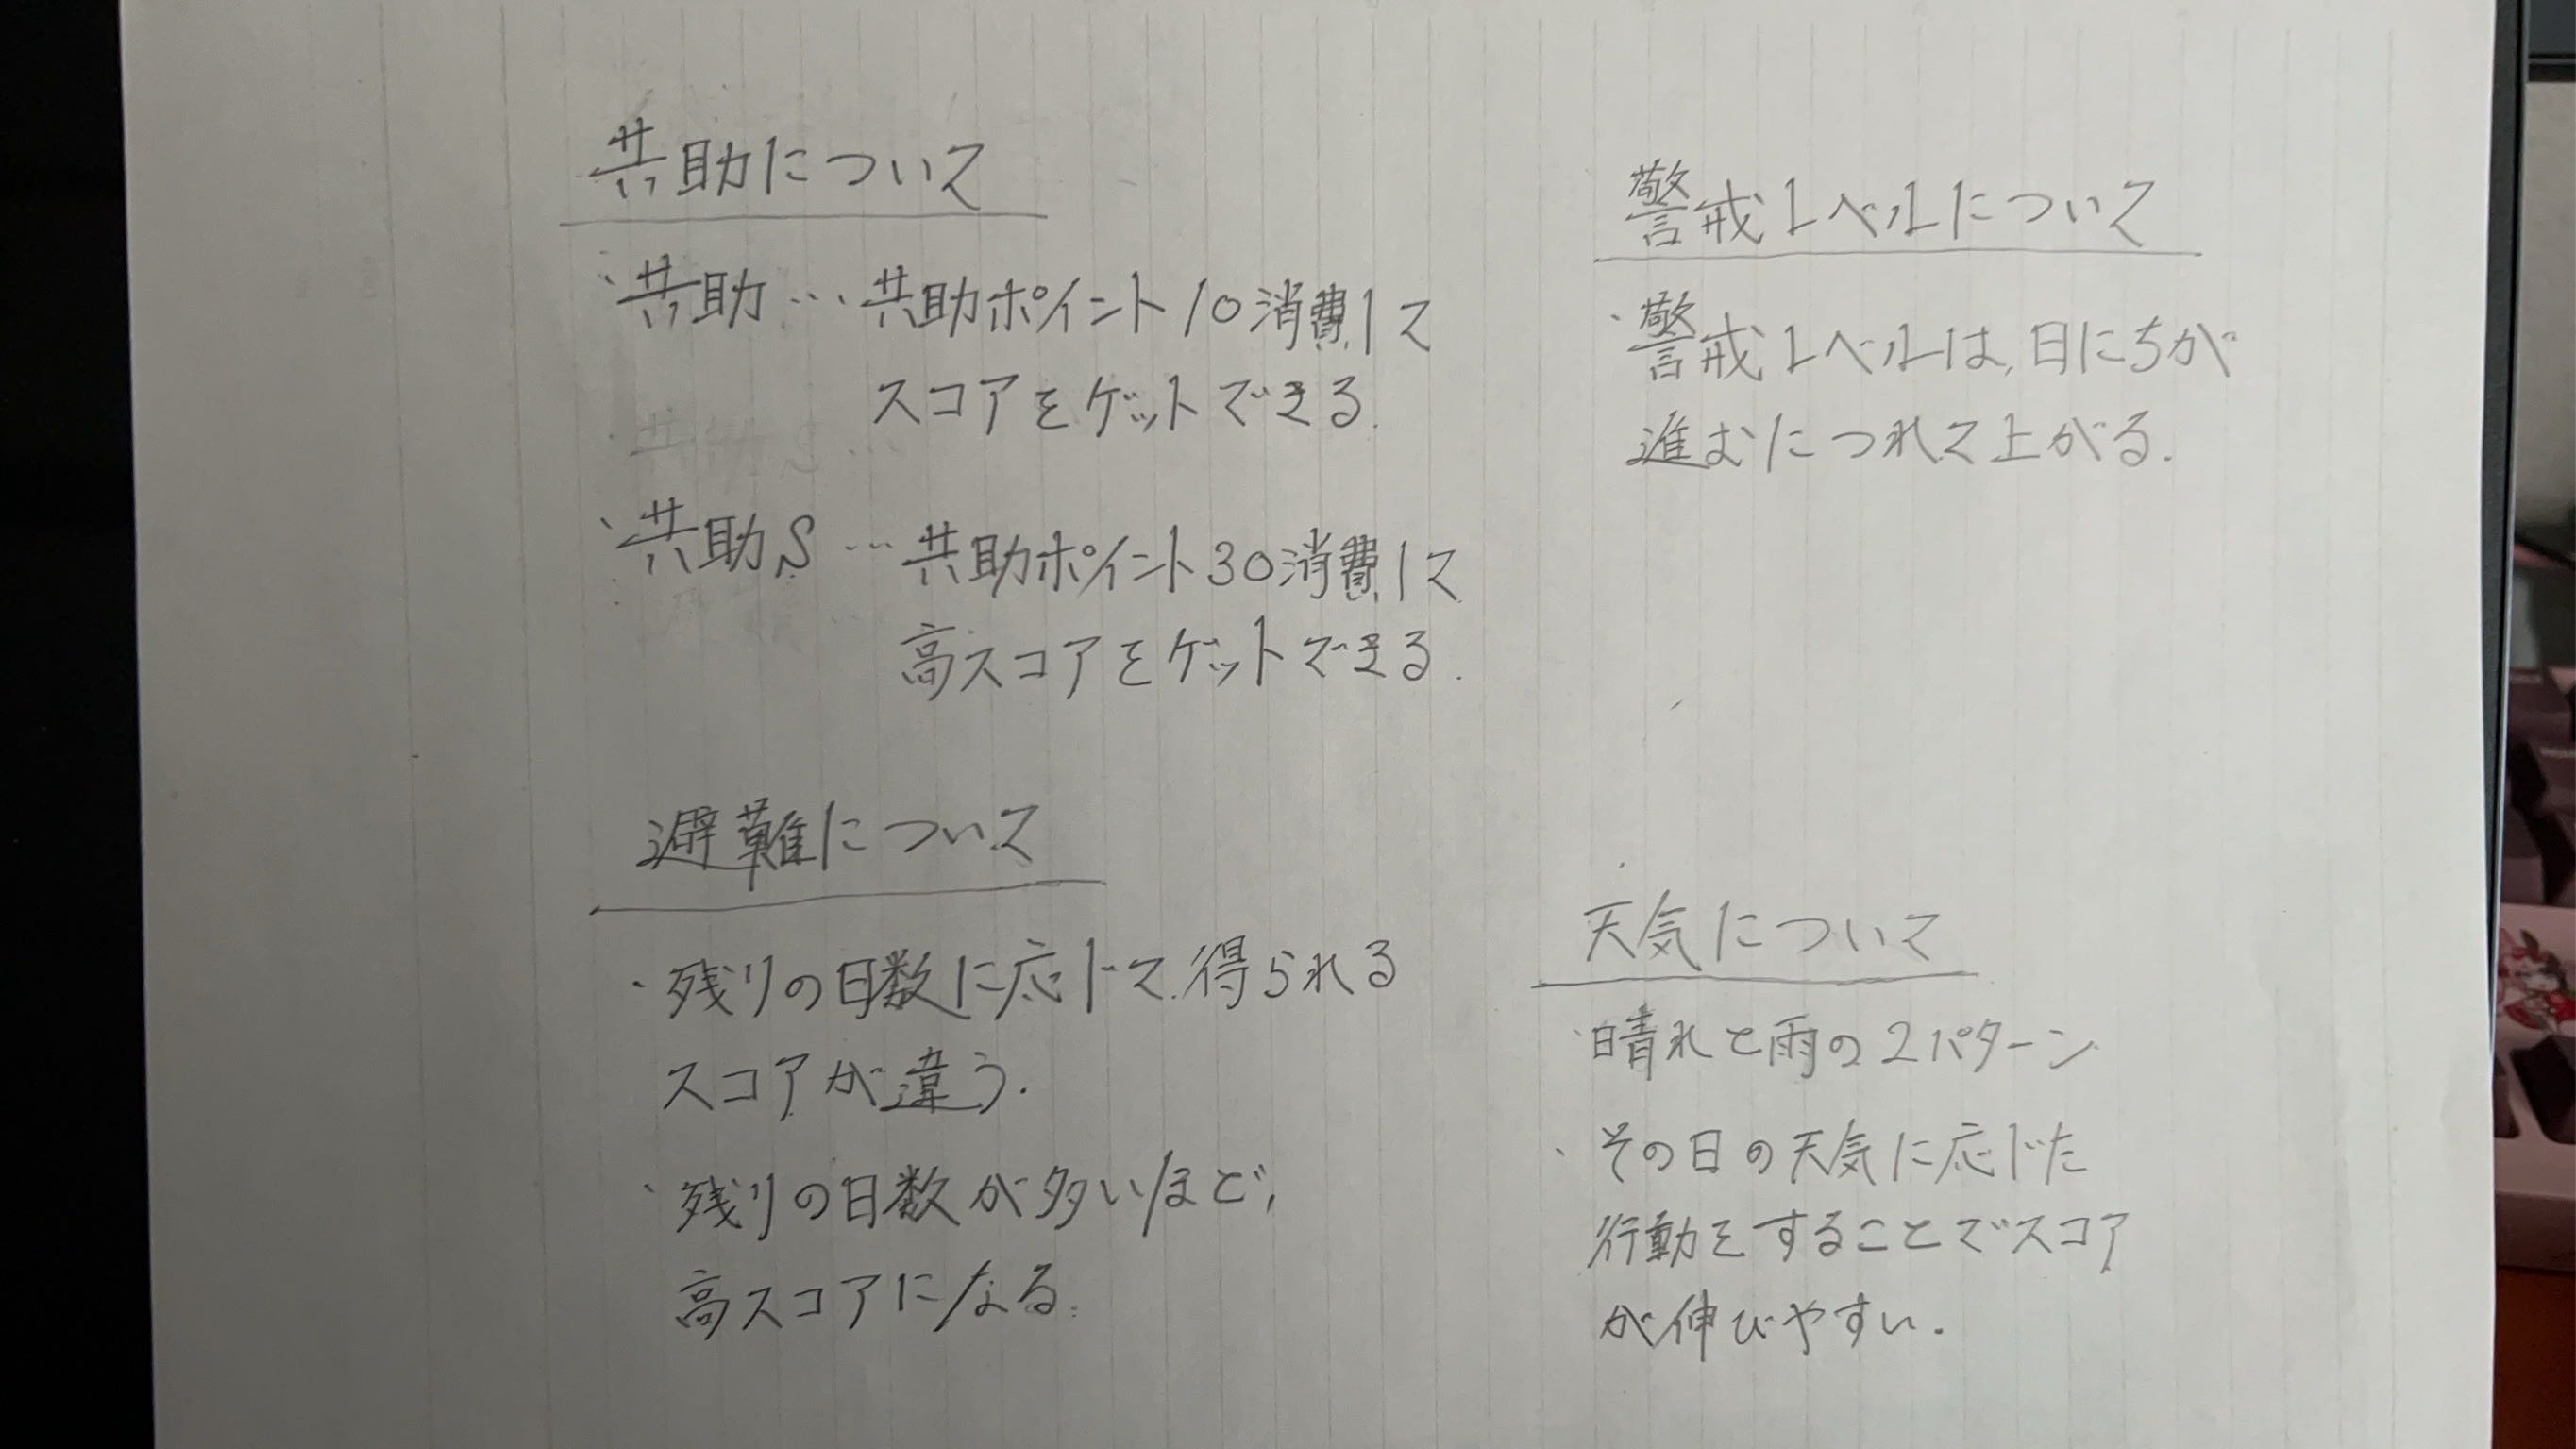 共助について
・共助…共助ポイント10消費して
スコアをゲットできる.
・共助S…共助ポイント30消費して
高スコアをゲットできる.
避難について
・残りの日数に応じて.得られる
スコアが違う.
・残りの日数が多いほど,
高スコアになる.
警戒レベルについて
・警戒レベルは,日にちが
進むにつれて上がる.
天気について
・晴れと雨の2パターン
・その日の天気に応じた
行動をすることでスコア
が伸びやすい.